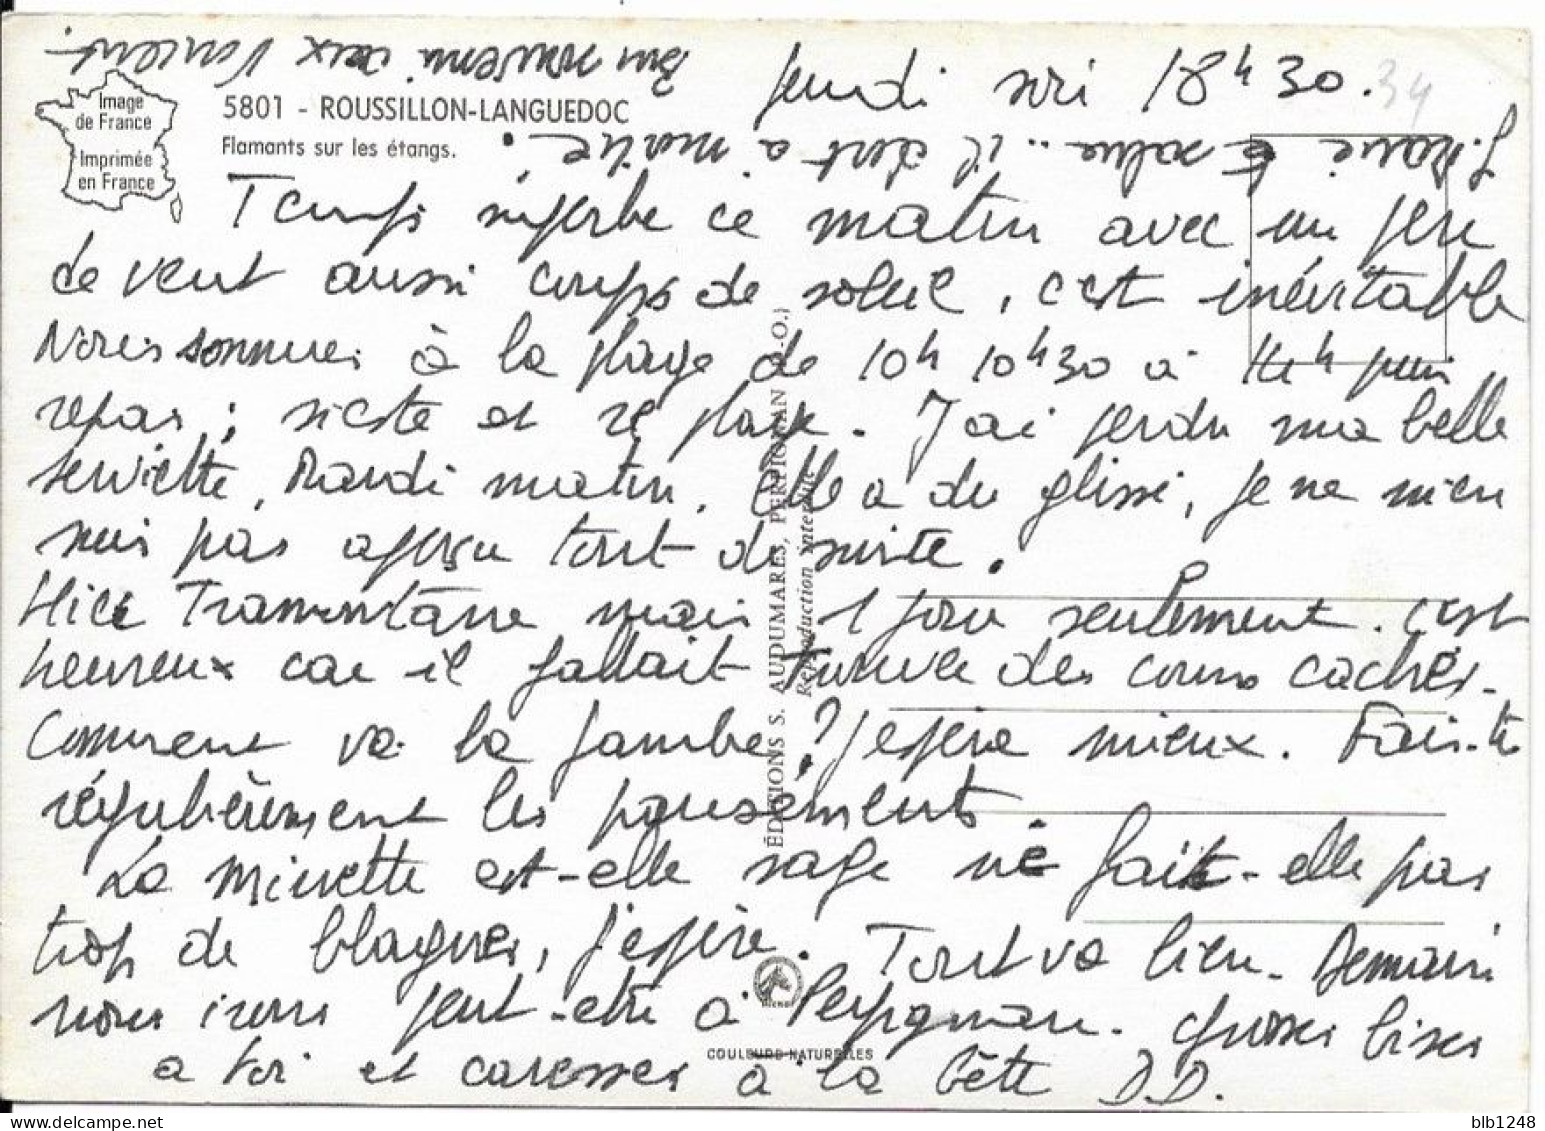 Jeudi soir 18h30.
34
Image
de France
Imprimée
en France
5801 - ROUSSILLON-LANGUEDOC
Flamants sur les étangs.
Temps superbe ce matin avec un peu
de vent aussi coups de soleil, c'est inévitable
Nous sommes à la plage de 10h 10h30 à 14h puis
repas ; sieste et re plage. J'ai perdu ma belle
serviette, Mardi matin. Elle a du glissé, je ne m'en
suis pas aperçu tout de suite.
Hier Tramontane mais 1 jour seulement. C'est
heureux car il fallait trouver des coins cachés.
Comment va la jambe ? J'espère mieux. Fais-te
régulièrement les pansements.
La Minette est-elle sage ne fait-elle pas
trop de blagues, j'espère. Tout va bien. Demain
nous irons peut-être à Perpignan. Grosses bises
a toi et caresses à la bête D.D.
ÉDITIONS S. AUDUMARES, PERPIGNAN -O.)
Reproduction interdite
COULEURS NATURELLES
salue... il dort a moitié.
Bon souvenir aux
blb1248